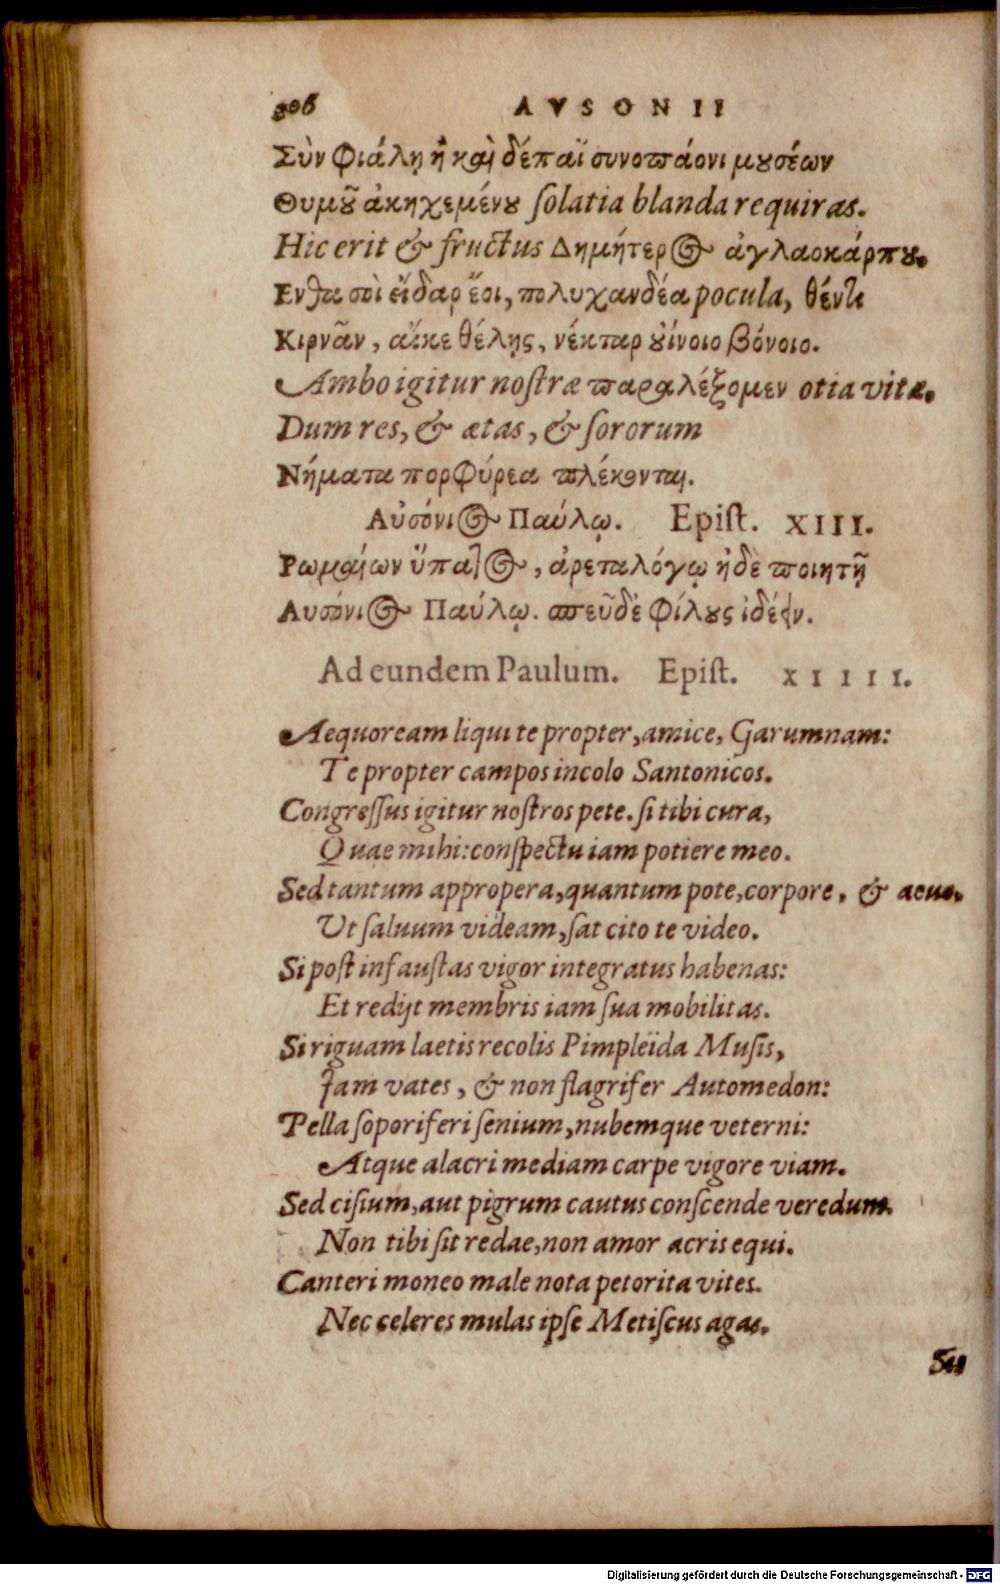 206 AVSONII
Σὺν φιάλῃ ἢ καὶ δέπαϊ συνοπάονι μουσέων
Θυμοῦ ἀκηχεμένου solatia blanda requiras.
Hic erit & fructus Δημήτερος ἀγλαοκάρπου.
Ενθα σοὶ εἴδαρ ἔοι, πολυχανδέα pocula, θέντι
Κιρνᾶν, αἴκε θέλης, νέκταρ οὐίνοιο βόνοιο.
Ambo igitur nostræ παραλέξομεν otia vitæ.
Dum res, & ætas, & sororum
Νήματα πορφύρεα πλέκονται.
Αὐσόνιος Παύλῳ. Epist. XIII.
Ρωμαίων ὕπατος, ἀρεταλόγῳ ἠδὲ ποιητῇ
Αυσόνιος Παύλῳ. σπεῦδε φίλους ἰδέειν.
Ad eundem Paulum. Epist. XIIII.
Aequoream liqui te propter, amice, Garumnam:
Te propter campos incolo Santonicos.
Congressus igitur nostros pete. si tibi cura,
Quae mihi: conspectu iam potiere meo.
Sed tantum appropera, quantum pote, corpore, & aeuo.
Ut saluum videam, sat cito te video.
Si post infaustas vigor integratus habenas:
Et redijt membris iam sua mobilitas.
Si riguam laetis recolis Pimpleïda Musis,
Jam vates, & non flagrifer Automedon:
Pella soporiferi senium, nubemque veterni:
Atque alacri mediam carpe vigore viam.
Sed cisium, aut pigrum cautus conscende veredum.
Non tibi sit redae, non amor acris equi.
Canteri moneo male nota petorita vites.
Nec celeres mulas ipse Metiscus agas.
Digitalisierung gefördert durch die Deutsche Forschungsgemeinschaft - DFG